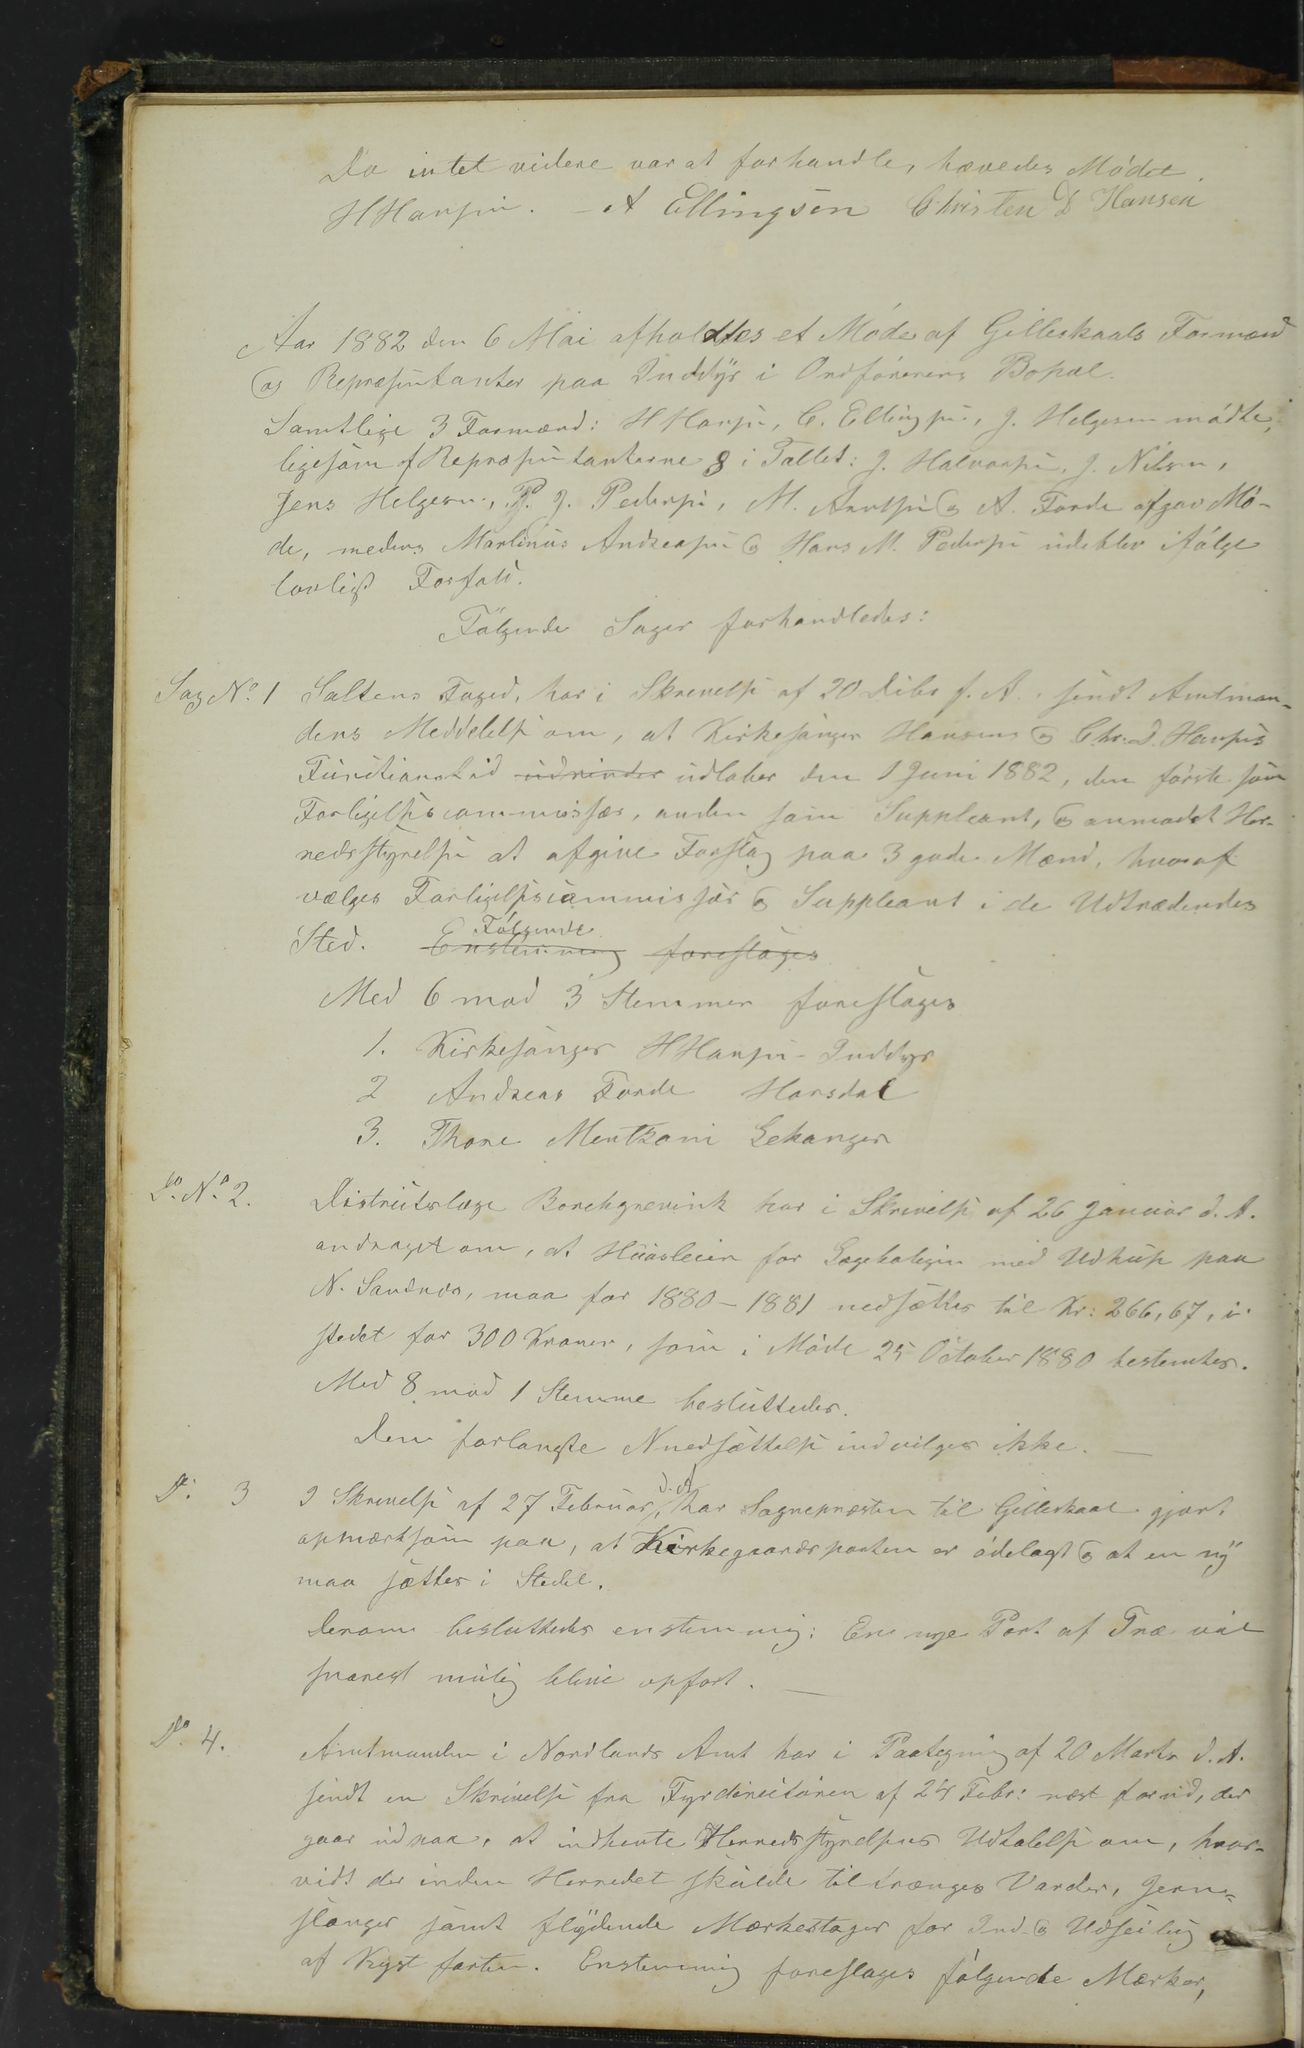 Da intet videre var at forhandle, hævedes Mødet.
HHansen. A Ellingsen Christen D Hansen
Aar 1882 den 6 Mai afholdtes et Møde af Gilleskaals Formænd
og Repræsentanter paa Inddyr i Ordførerens Bopæl.
Samtlige 3 Formænd: HHansen, C. Ellingsen, J. Helgesen mødte,
ligesom af Repræsentanterne 8 i Tallet: J. Halvorsen, J. Nilsen,
Jens Helgesen, P. J. Pedersen, M. Arntsen og A. Forde afgav Mø-
de, medens Martinus Andreasen og Hans M. Pedersen udeblev ifølge
lovligt Forfald.
Følgende Sager forhandledes:
Sag No. 1 Saltens Foged, har i Skrivelse af 20 Debr f. A. sendt Amtman-
dens Meddelelse om, at Kirkesanger Hansens og Chr. D. Hansens
Functionstid udrinder udløber den 1 Juni 1882, den første som
Forligelsescommissær, anden som Suppleant, og anmodet Her-
redsstyrelsen at afgive Forslag paa 3 gode Mænd, hvoraf
vælges Forligelsescommissær og Suppleant i de Udtrædendes
Sted. Enstemmig Følgende foreslages
Med 6 mod 3 Stemmer foreslages
1. Kirkesanger HHansen - Inddyr
2 Andreas Forde Horsdal
3. Thore Mentzoni Lekanger
Do. No. 2. Districtslæge Borchgrevink har i Skrivelse af 26 Januar d. A.
andraget om, at Huusleien for Lægeboligen med Udhuse paa
N. Sandnes, maa for 1880 - 1881 nedsættes til Kr: 266,67, i
stedet for 300 Kroner, som i Møde 25 October 1880 bestemtes.
Med 8 mod 1 Stemme besluttedes.
Den forlangte Nnedsættelse indvilges ikke.
Do. 3 I Skrivelse af 27 Februar d. A. har Sognepræsten til Gilleskaal gjort
opmærksom paa, at Kirkegaardsporten er ødelagt og at en ny
maa sættes i Stedet.
Derom besluttedes enstemmig: En nye Port af Træ vil
snarest mulig blive opført.
Do. 4. Amtmanden i Nordlands Amt har i Paategning af 20 Marts d. A.
sendt en Skrivelse fra Fyrdirectøren af 24 Febr: næst forud, der
gaar ud paa, at indhente Herredsstyrelsens Udtalelse om, hvor-
vidt der inden Herredet skulde tiltrænges Varder, Jern-
stænger samt flydende Mærkestager for Ind og Udseiling
af Kystfarten. Enstemmig foreslages følgende Mærker,